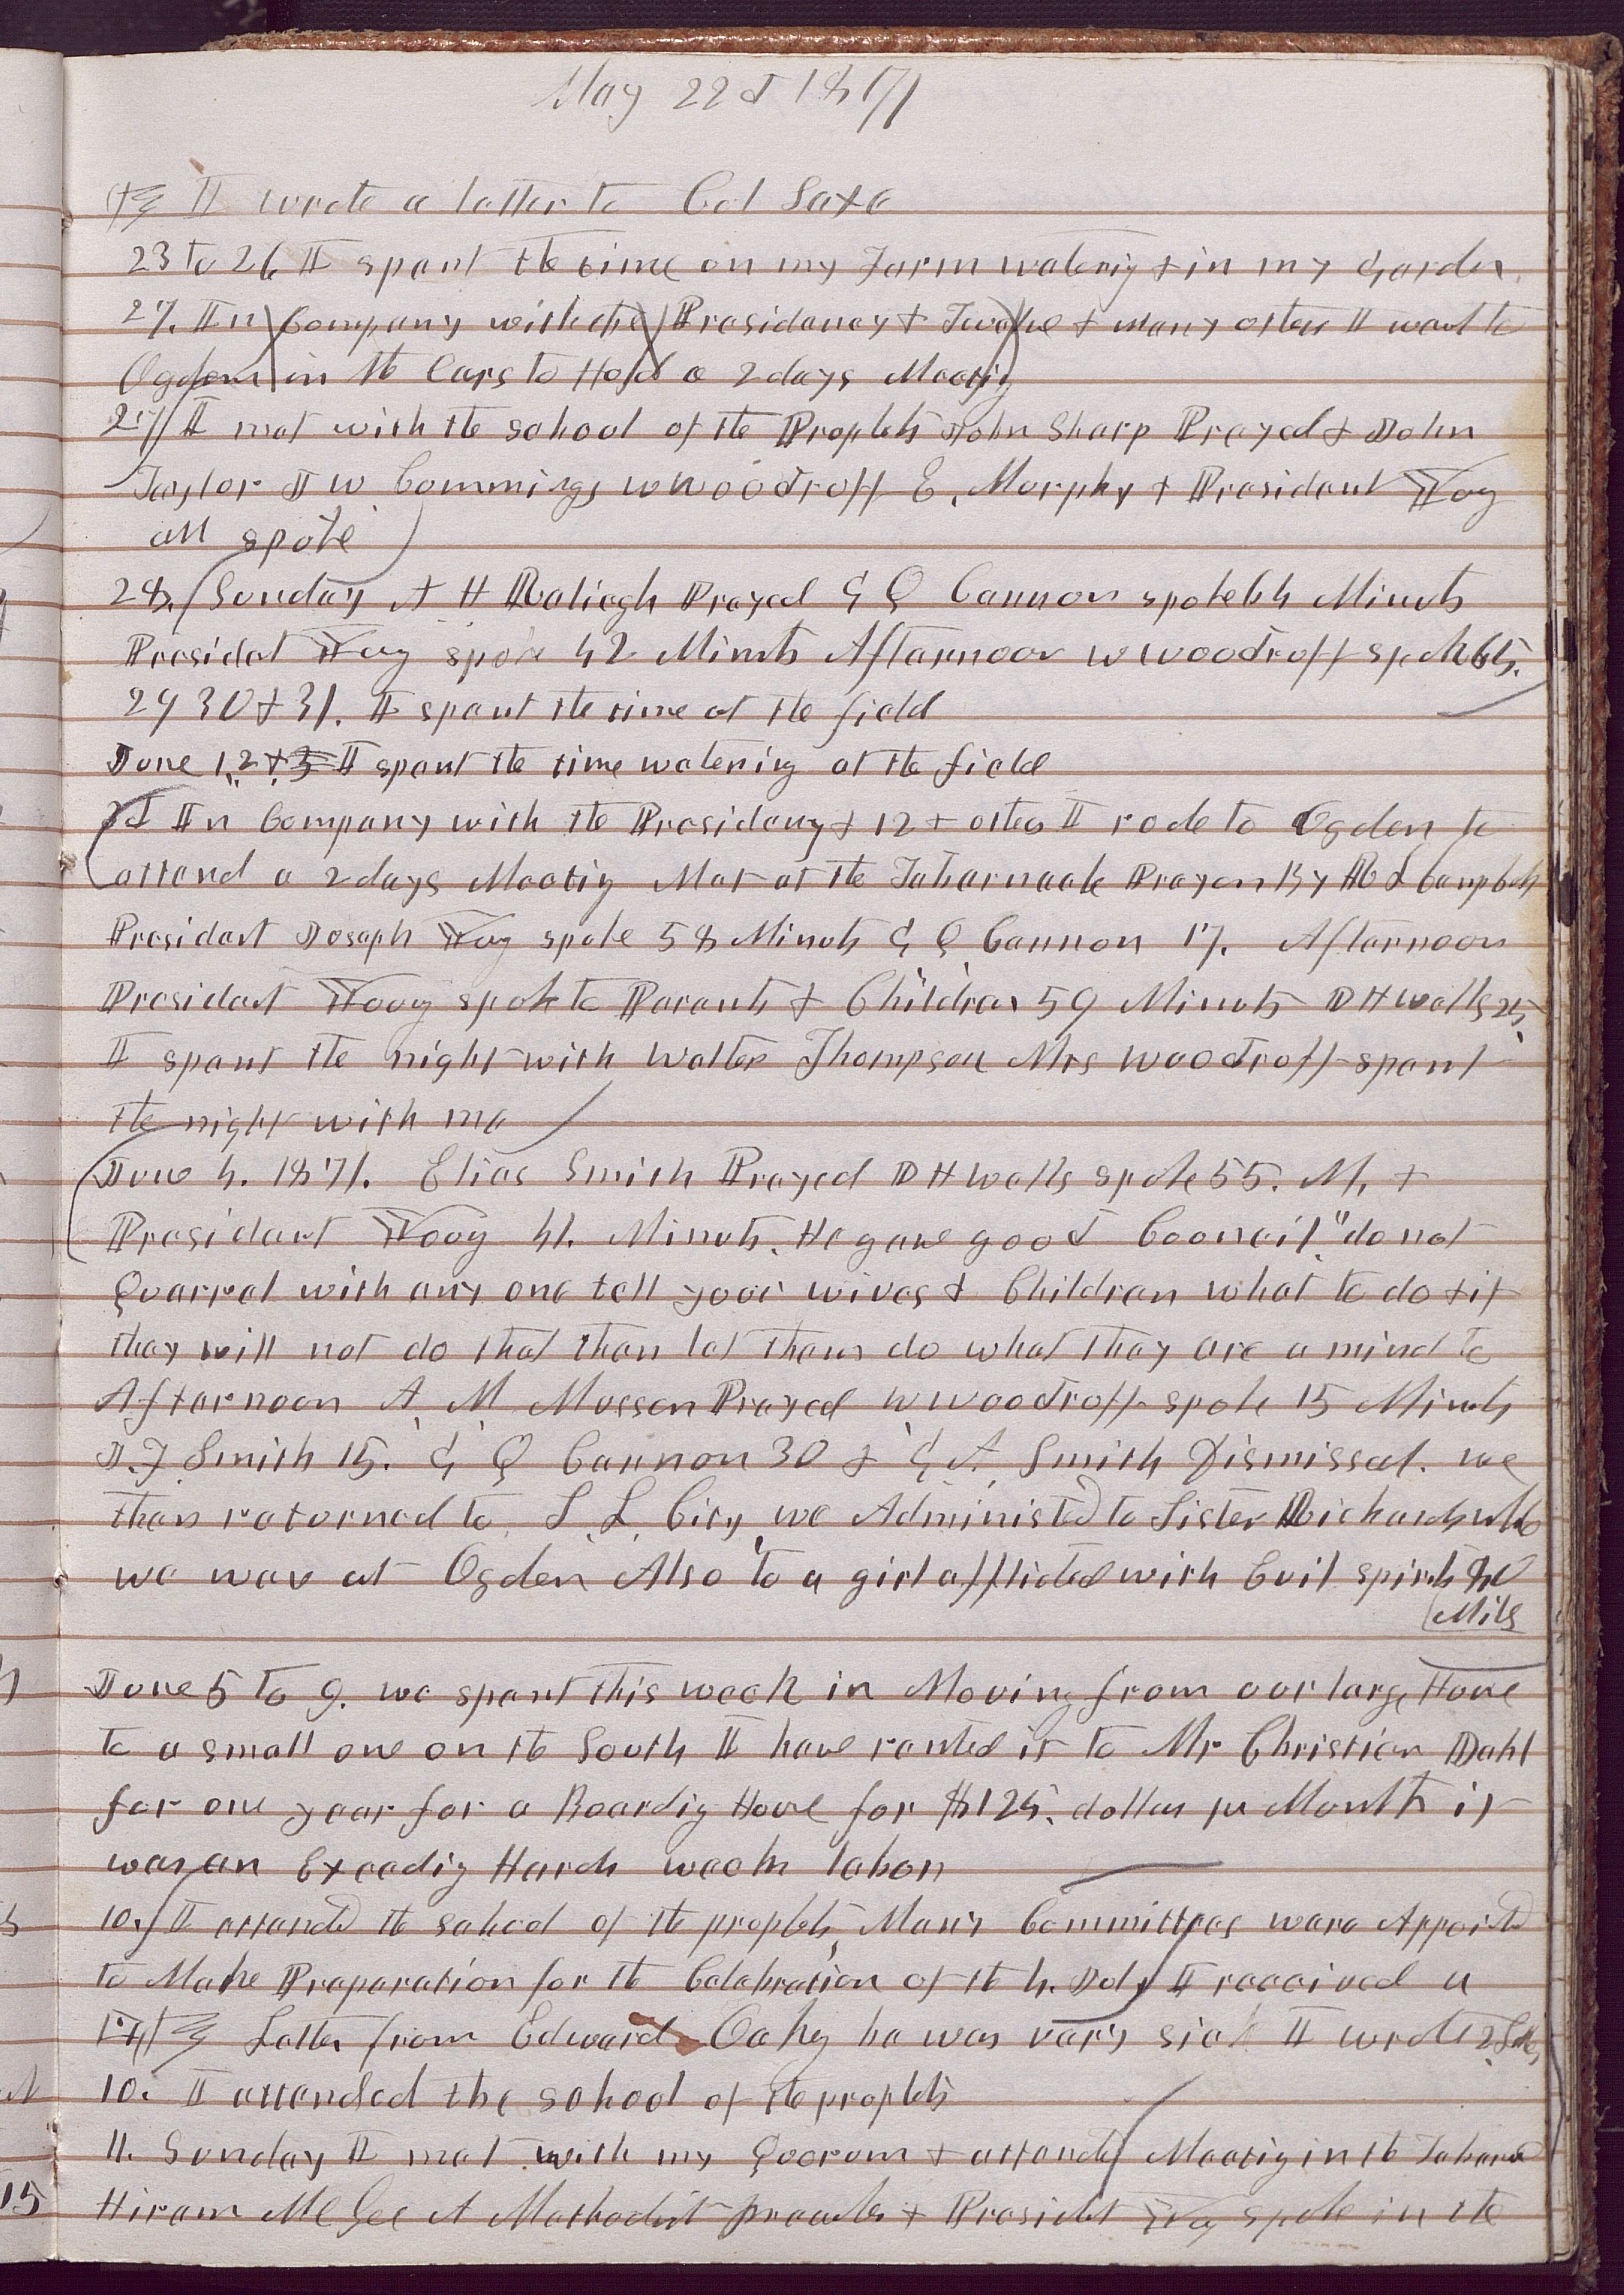 May 22d 1871
I wrote a letter to Col Saxe
23 to 26 I spent the time on my Farm watering & in my Garden
27. In Company with the Presidency & Twelve & many others I went to
Ogden in the Cars to Hold a 2 days Meeting
27 I met with the school of the Prophets John Sharp Prayed & John
Taylor J W Commings W Woodruff E. Morphy & President Young
all spoke
28. Sunday A H Raliegh Prayed G Q Cannon spoke 64 Minuts
Presidet Young spoke 42 Minuts Afternoon W Woodruff spoke 65.
29 30 & 31. I spent the time at the field
June 1, 2 & 3 I spent the time watering at the field
3d In Company with the Presidency & 12 & others I rode to Ogden to
attend a 2 days Meeting Met at the Tabernacle Prayer By R L Campbell
President Joseph Young spoke 58 Minuts G Q Cannon 17. Afternoon
President Young spoke to Parents & Children 59 Minuts D H Wells 25,
I spent the night with Walter Thompson Mrs Woodruff spent
the night with me
June 4. 1871. Elias Smith Prayed D H Wells spoke 55. M. &
President Young 41. Minuts. He gave good Council. "do not
Quarrel with any one tell your wives & Children what to do & if
they will not do that then let them do what they are a mind to
Afternoon A M Musser Prayed W Woodruff spoke 15 Minuts
J. F. Smith 15. G Q Cannon 30 & G A Smith Dismissed. we
then returned to S. L. City we Administed to Sister Richards while
we were at Ogden Also to a girl afflicted with Evil spirits 80
Miles
June 5 to 9. we spent this week in Moving from our large House
to a small one on the South I have rented it to Mr Christian Dahl
for one year for a Boardig House for $125. dollars per Month it
was an Exceedig Hard weeks labor
10. I attended the school of the prophets, Many Committees were Appointed
to Make Preparation for the Celebration of the 4. July I received a
Letter from Edward Oakey he was very sick I wrote 2 Letters
10. I attended the school of the prophets
11. Sunday I met with my Quorum & attended Meeting in the Tabernacle
Hiram McGee A Methodist preacher & Presidet Young spoke in the